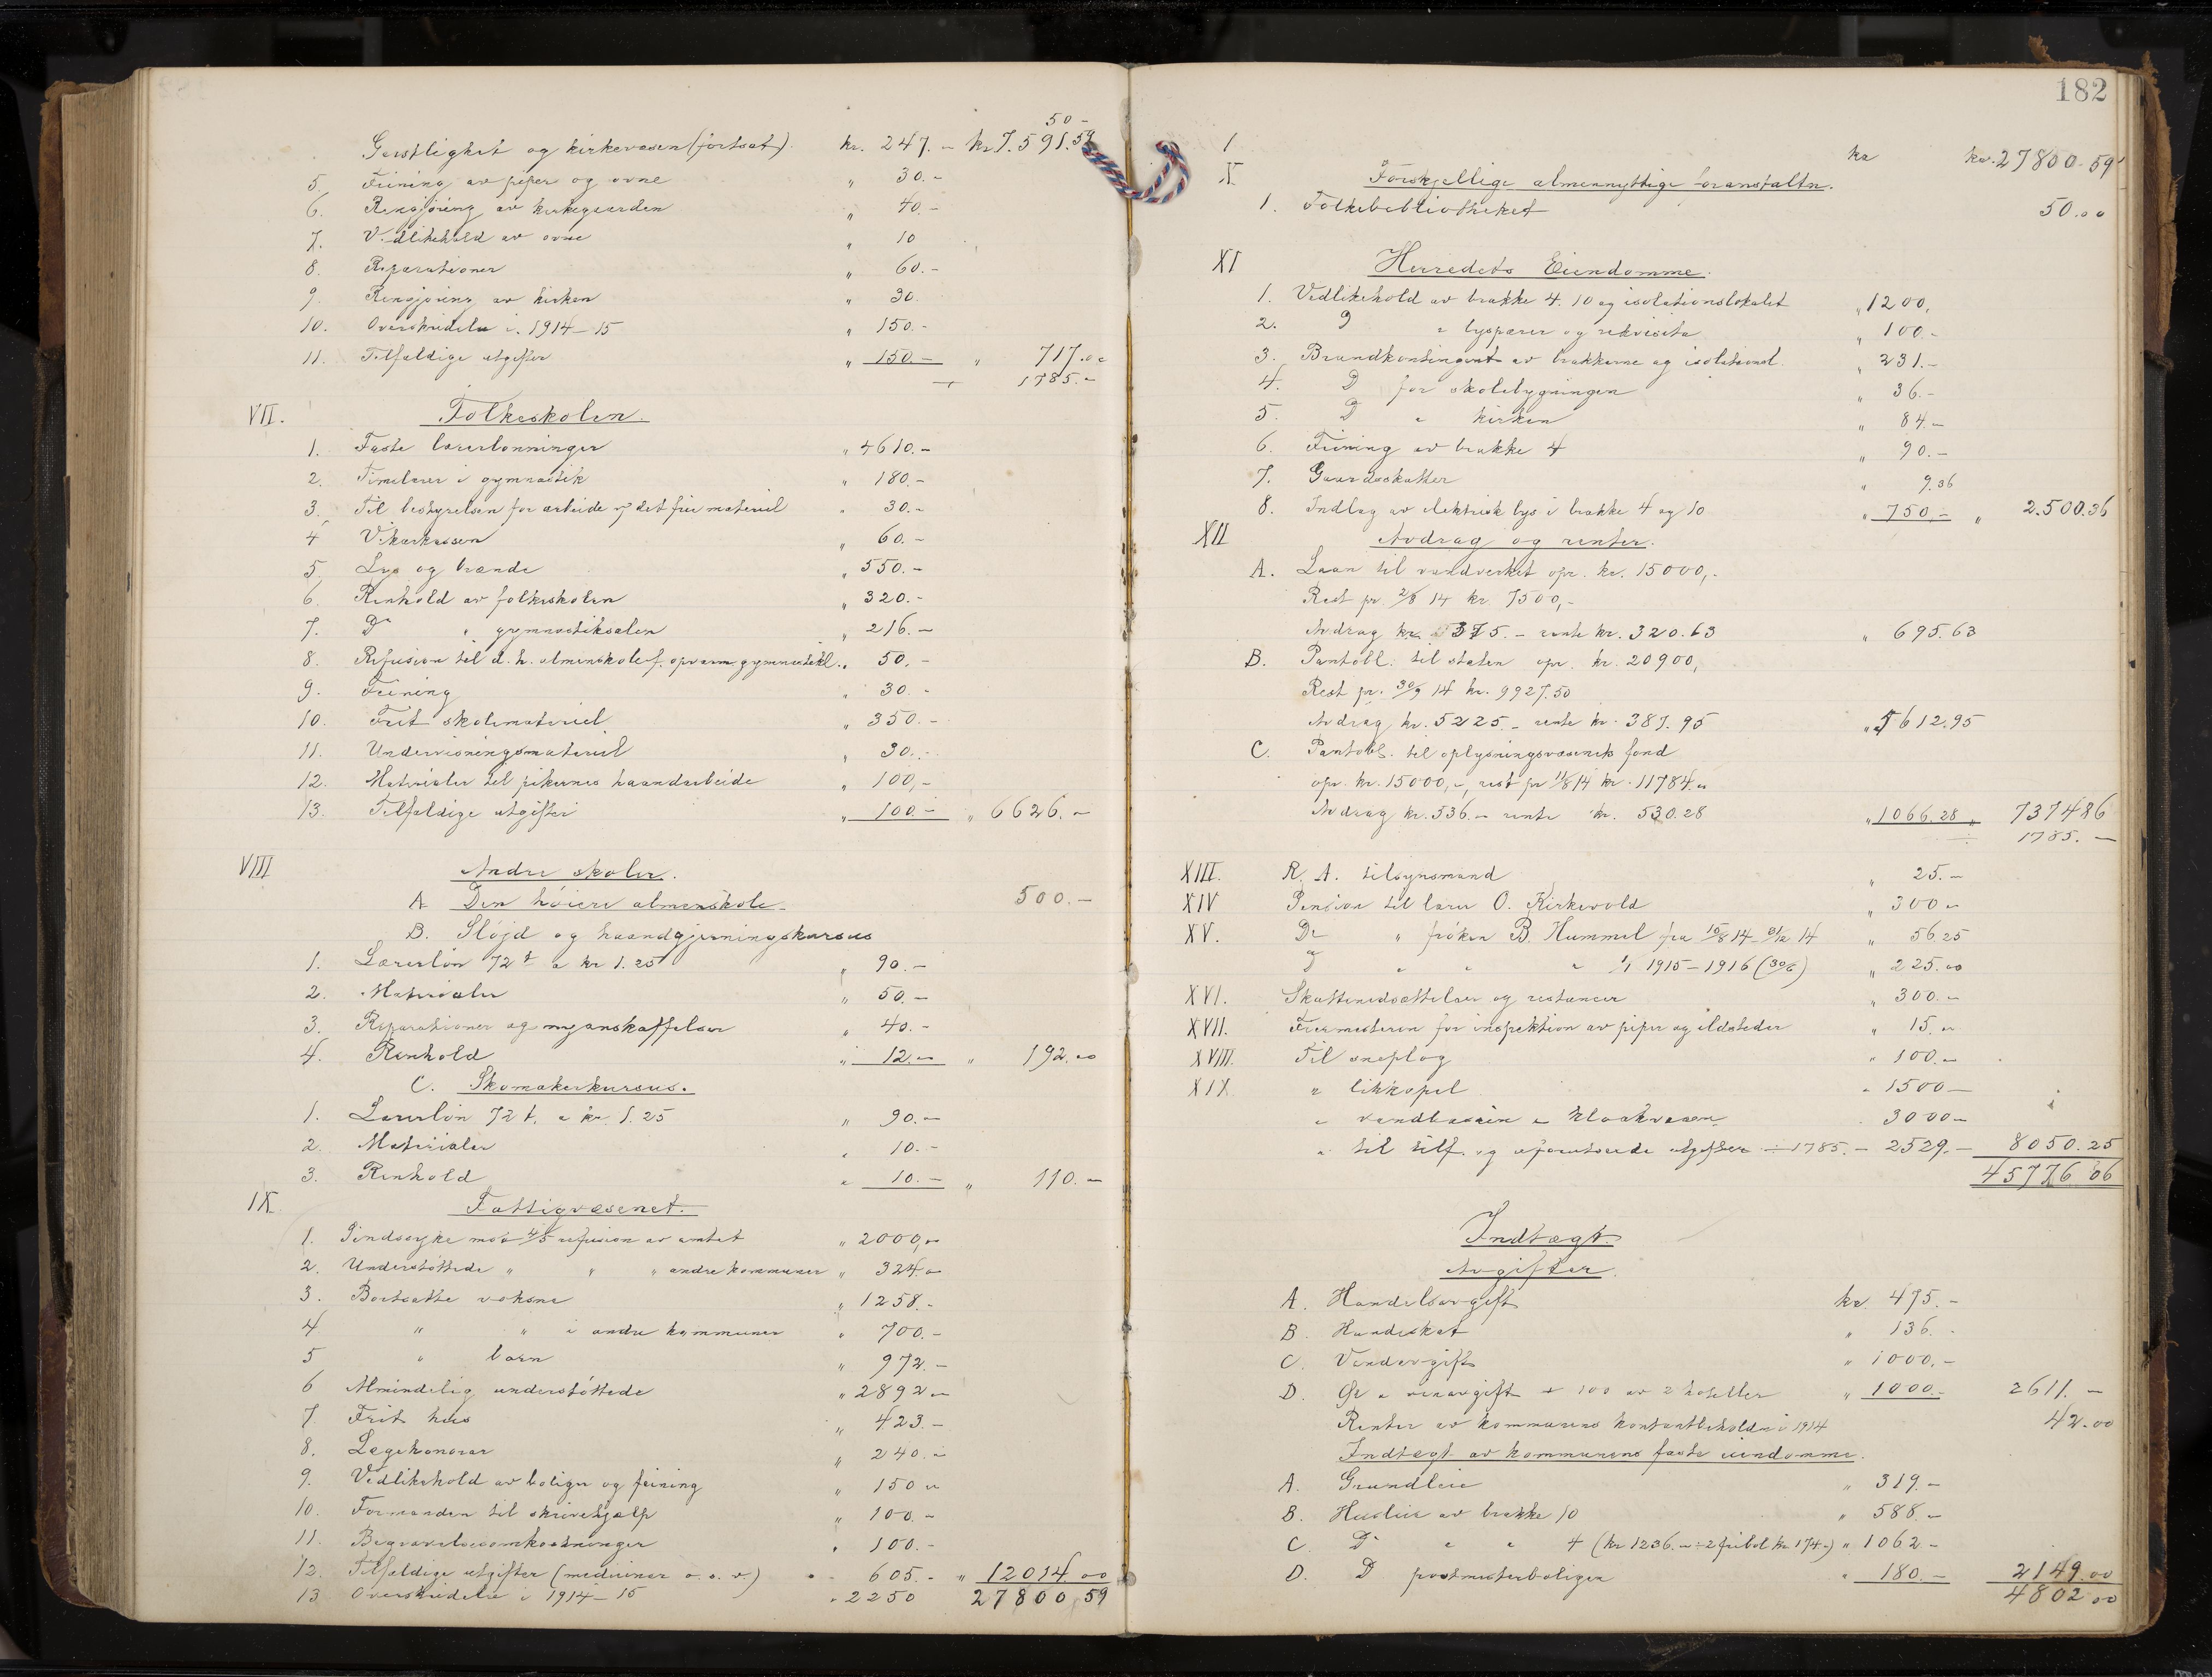 50 -
Geistlighet og kirkevæsen (fortsat). kr. 247.- kr. 7.591.59
5. Feining av piper og ovne " 30.-
6. Rengjøring av kirkegaarden " 40.-
7. Vedlikehold av ovne " 10
8. Reparationer " 60.-
9. Rengjøring av kirken " 30.
10. Overskridelse i 1914-15 " 150.-
11. Tilfældige utgifter " 150.- " 717.00
1785.-
VII. Folkeskolen.
1. Faste lærerlønninger " 4610.-
2. Timelærer i gymnastik " 180.-
3. Til bestyrelsen for arbeide m/ det frie materiel " 30.-
4 Vikarkassen " 60.-
5. Lys og brænde " 550.-
6. Renhold av folkeskolen " 320.-
7. Do " gymnastiksalen " 216.-
8. Refusion til d. h. almenskole f. opvarm. gymnastikl. " 50.-
9. Feining " 30.-
10. Frit skolemateriel " 350.-
11. Undervisningsmateriel " 30.-
12. Materialer til pikernes haandarbeide " 100,-
13. Tilfældige utgifter " 100.- " 6626.-
VIII Andre skoler.
A. Den høiere almenskole. 500.-
B. Sløjd og haandgjerningskursus
1. Lærerløn 72 t a kr 1.25 " 90.-
2. Materialer " 50.-
3. Reparationer og nyanskaffelser " 40.-
4. Renhold " 12.00 " 192.00
C. Skomakerkursus.
1. Lærerløn 72 t. a kr. 1.25 " 90.-
2. Materialer " 10.-
3. Renhold " 10.- " 110.-
IX. Fattigvæsenet.
1. Sindssyke mot 4/5 refusion av amtet " 2000,00
2. Understøttede " " " andre kommuner " 324.00
3. Bortsatte voksne " 1258.-
4 " " i andre kommuner " 700.-
5 " barn " 972.-
6 Almindelig understøttede " 2892 00
7 Frit hus " 423 -
8. Lægehonorar " 240.-
9. Vedlikehold av boliger og feining " 150 00
10. Formanden til skrivehjælp " 100.-
11. Begravelsesomkostninger " 100.-
12. Tilfældige utgifter (mediciner o. s. v.) " 605.- " 12014.00
13 Overskridelse i 1914-15 " 2250 27800.59
182
1 kr kr. 27800.59
X. Forskjellige almennyttige foranstaltn.
1. Folkebibliotheket 50.00
XI Herredets Eiendomme.
1. Vedlikehold av brakke 4. 10 og isolationslokalet " 1200,
2. D " lyspærer og rekvisita " 100.-
3. Brandkontingent av brakkerne og isolationsl. " 231.-
4. D for skolebygningen " 36.-
5. D " kirken " 84.-
6. Feining av brakke 4 " 90.-
7. Gaardsskatter " 9.36
8. Indlæg av elektrisk lys i brakke 4 og 10 " 750.- " 2.500.36
XII Avdrag og renter.
A. Laan til vandverket opr. kr. 15000,-
Rest pr. 2/8 14 kr. 7500,-
Avdrag kr. 375.- rente kr. 320.63 " 695.63
B. Pantobl. til staten opr. kr. 20900,
Rest pr. 30/9 14 kr. 9927.50
Avdrag kr. 5225.- rente kr. 387.95 " 5612.95
C. Pantobl. til oplysningsvæsenets fond
opr. kr. 15000,-, rest pr 11/6 14 kr. 11784.00
Avdrag kr. 536.- rente kr. 530.28 " 1066.28 " 7374 86
÷ 1785.-
XIII. R. A. tilsynsmand " 25.-
XIV Pension til lærer O. Kirkevold " 300 00
XV. Do " frøken B. Hummel fra 15/8 14 - 31/12 14 " 56.25
D " " " 1/1 1915-1916 (30/6) " 225.00
XVI. Skattenedsættelser og restancer " 300.-
XVII. Feiermesteren for inspektion av piper og ildsteder " 15.00
XVIII. Til sneplog " 100.-
XIX. " likkapel " 1500-
" vandbassin " kloakvæsen. 3000-
" til tilf. og uforutseede utgifter ÷ 1785.- 2529.- 8050.25
45776 06
Indtægt.
Avgifter.
A. Handelsavgift kr. 475.-
B. Hundeskat " 136.-
C. Vinavgift " 1000.-
D. Øl " vinavgift + 100 av 2 hoteller " 1000.- 2611.-
Renter av kommunens kontantbeholdn i 1914 42.00
Indtægt av kommunens faste eiendomme.
A. Grundleie " 319.-
B. Husleie av brakke 10 " 588.-
C. Do " " 4 (kr 1236.- ÷ 2 fribol kr 174-) " 1062-
D. D postmesterboligen " 180.- 2149.00
4802 00